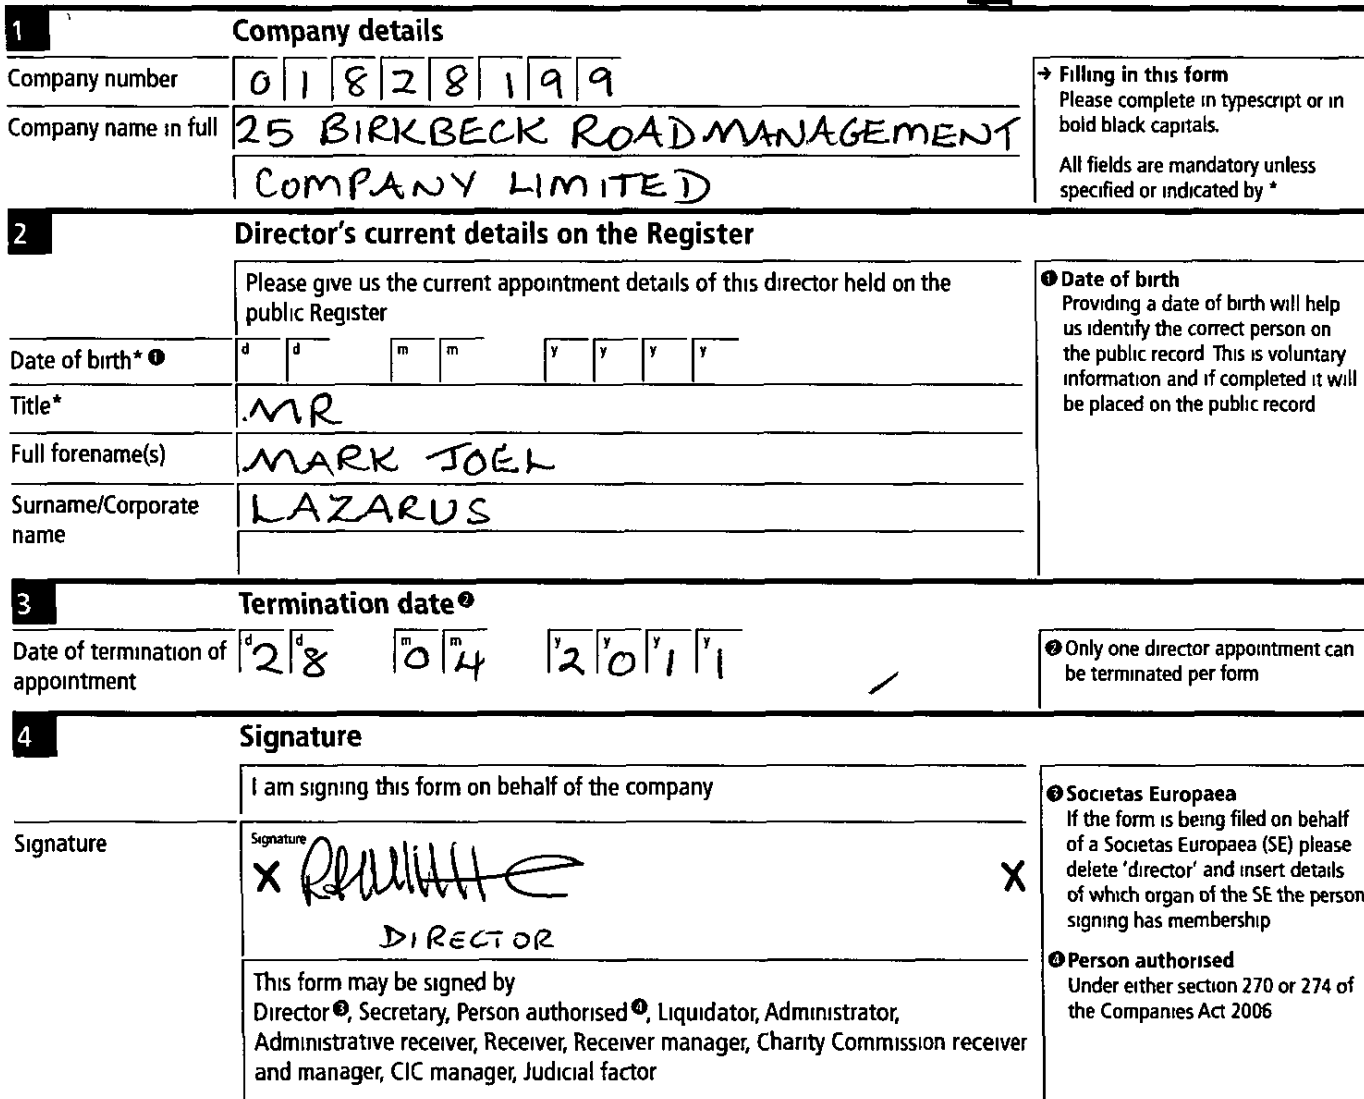 1 Company details
Company number 01828199
Company name in full 25 BIRKBECK ROAD MANAGEMENT
COMPANY LIMITED
→ Filling in this form
Please complete in typescript or in
bold black capitals.
All fields are mandatory unless
specified or indicated by *
2 Director's current details on the Register
Please give us the current appointment details of this director held on the
public Register
Date of birth* ❶ d d m m y y y y
Title* MR
Full forename(s) MARK JOEL
Surname/Corporate LAZARUS
name
❶ Date of birth
Providing a date of birth will help
us identify the correct person on
the public record This is voluntary
information and if completed it will
be placed on the public record
3 Termination date❷
Date of termination of d2 d8 m0 m4 y2 y0 y1 y1
appointment
❷ Only one director appointment can
be terminated per form
4 Signature
I am signing this form on behalf of the company
Signature
Signature
X X
DIRECTOR
This form may be signed by
Director❸, Secretary, Person authorised❹, Liquidator, Administrator,
Administrative receiver, Receiver, Receiver manager, Charity Commission receiver
and manager, CIC manager, Judicial factor
❸ Societas Europaea
If the form is being filed on behalf
of a Societas Europaea (SE) please
delete 'director' and insert details
of which organ of the SE the person
signing has membership
❹ Person authorised
Under either section 270 or 274 of
the Companies Act 2006